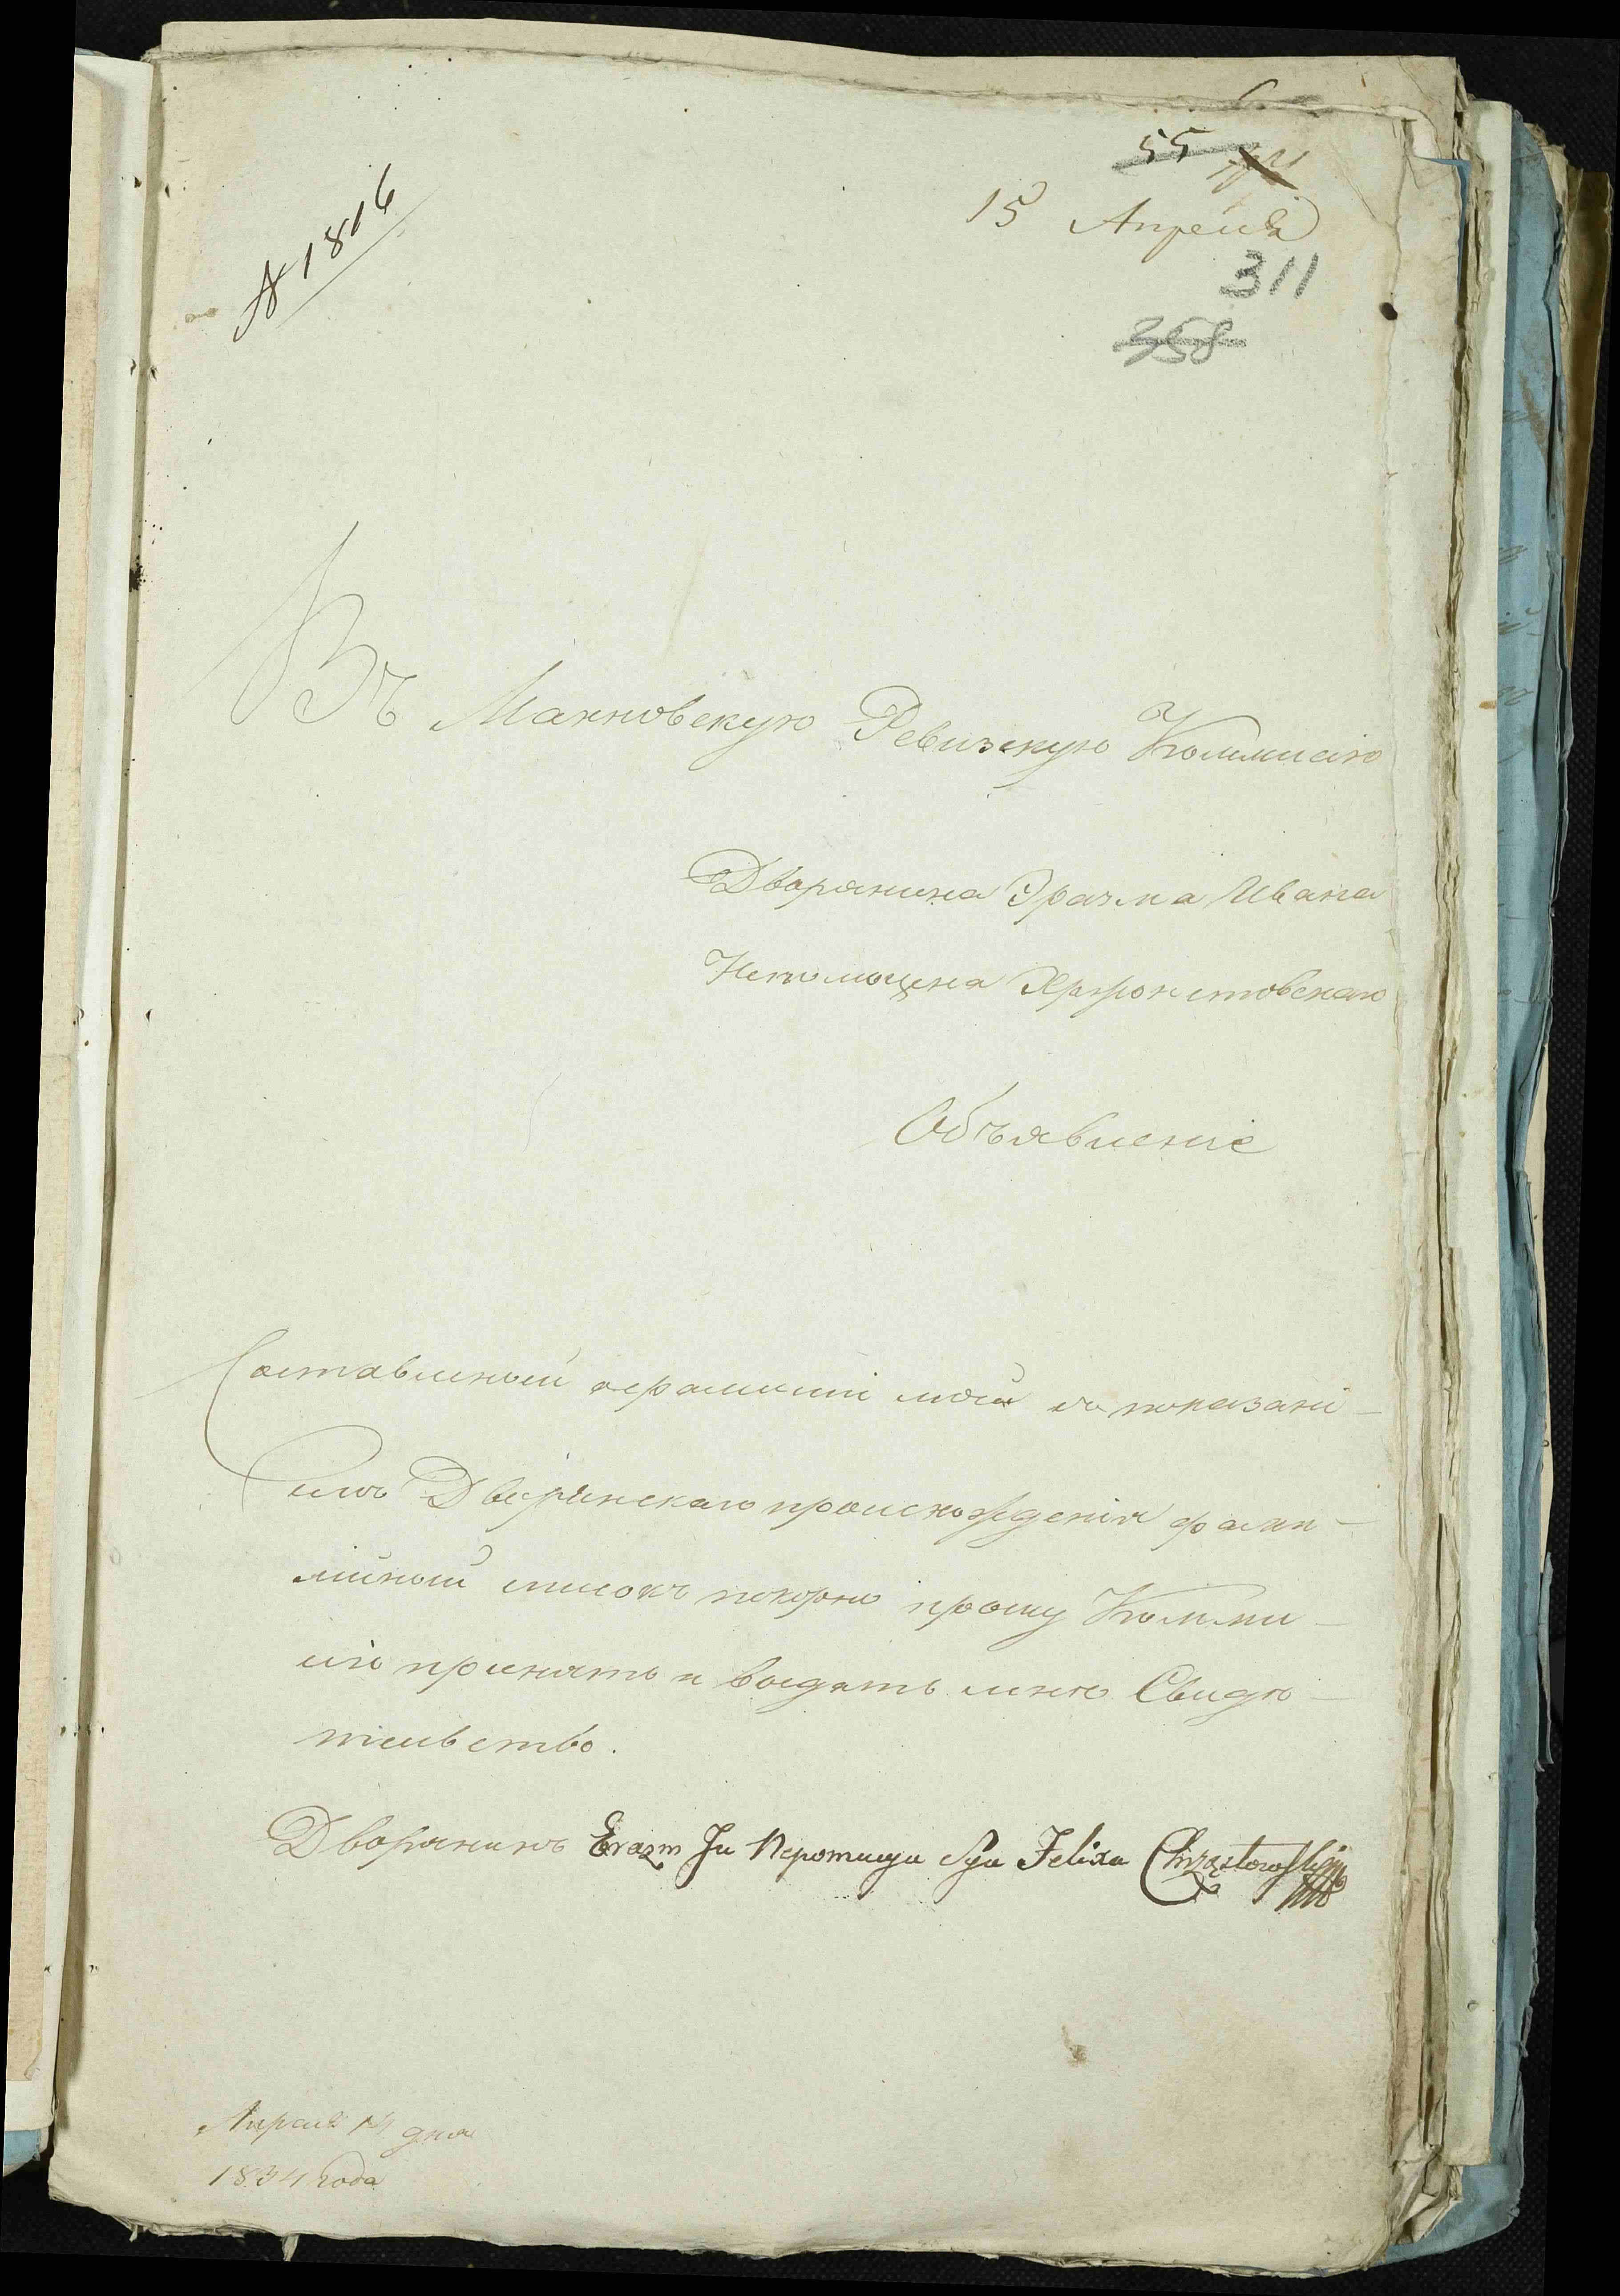 55
№ 1816
15 Апреля
311
358
Въ Махновскую Ревизскую Коммисію
Дворянина Эразма Ивана
Непомуцена Хржонстовскаго
Объявленіе
Составленный о фамиліи моей съ показані-
емъ Дворянскаго происхожденія фами-
лійный списокъ покорно прошу Комми-
сію принять и выдать мнѣ Свидѣ-
тельство.
Дворянинъ Erazm Ju Nepomucyn Syn Felixa Chrząstowski
Апреля 14 дня
1834 года